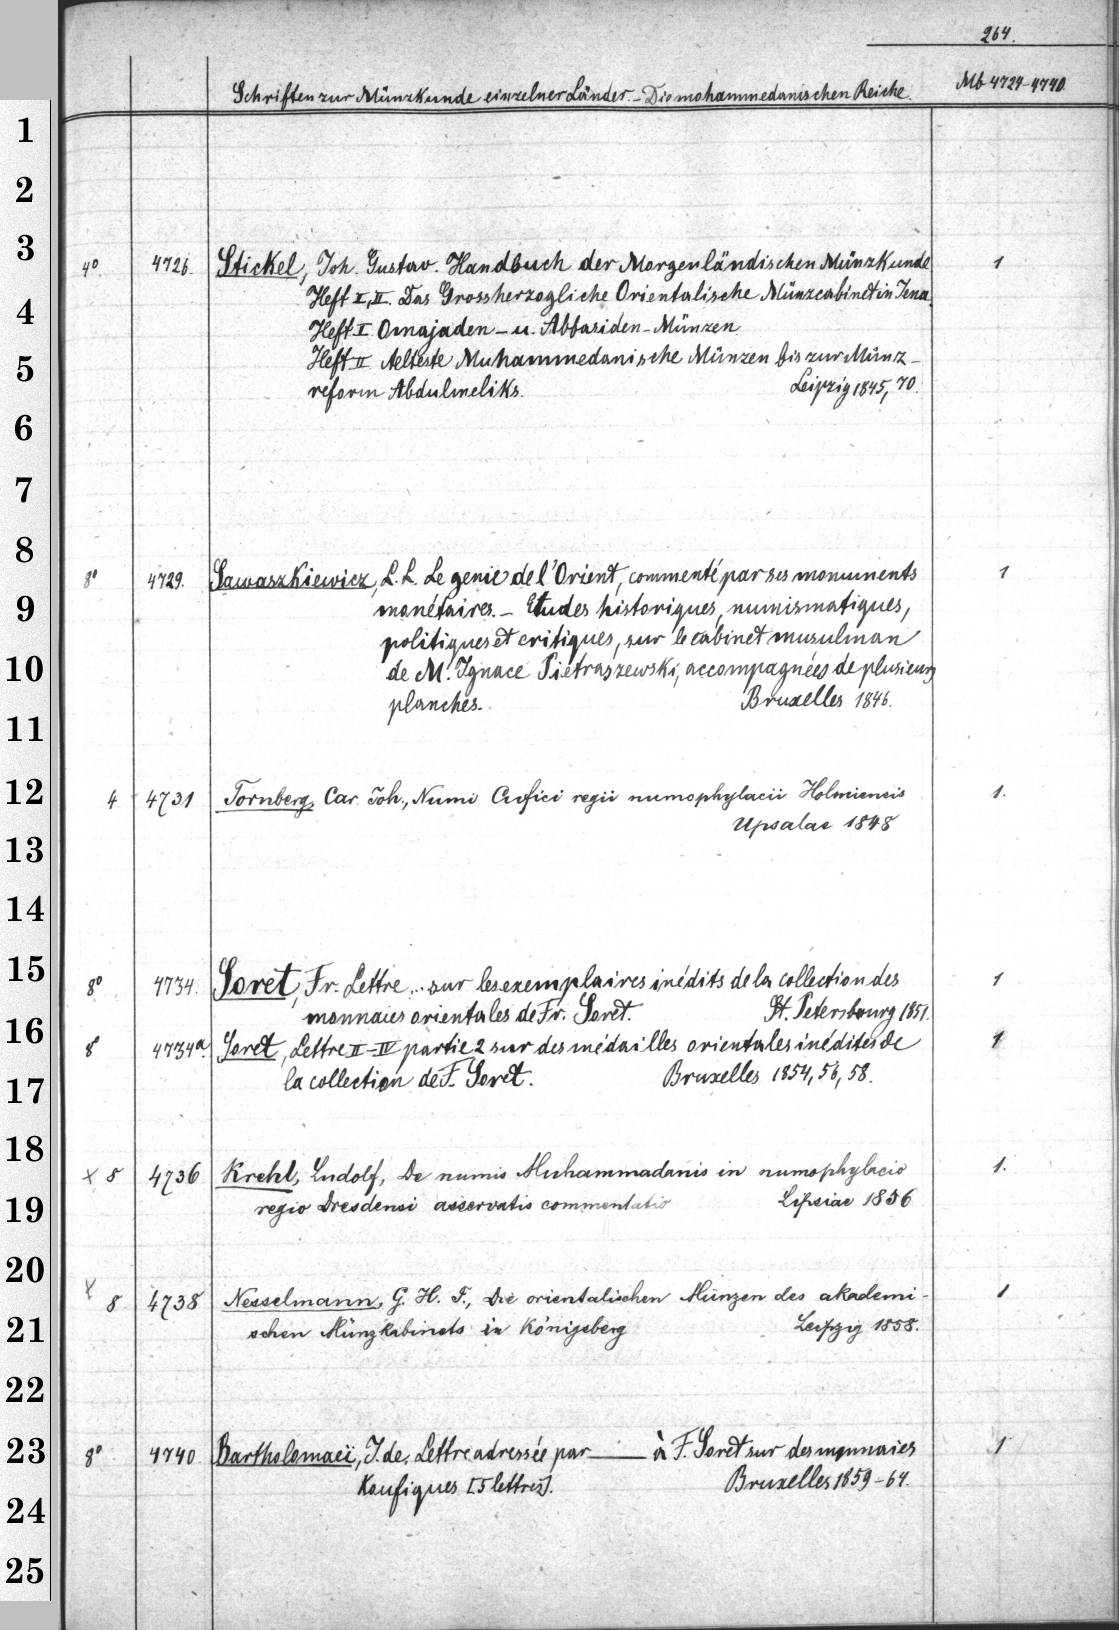 264.
Schriften zur Münzkunde einzelner Länder. – Die mohammedanischen Reiche. Mb 4724-4740
1
2
3
4° 4726. Stickel, Joh. Gustav. Handbuch der Morgenländischen Münzkunde 1
Heft I, II. Das Grossherzogliche Orientalische Münzcabinet in Jena.
4
Heft I Omajaden – u. Abbasiden – Münzen
5
Heft II Aelteste Muhammedanische Münzen bis zur Münz-
reform Abdulmeliks. Leipzig 1845, 70.
6
7
8
8° 4729. Sawaszkiewicz, L. L. Le genie de l'Orient, commenté par ses monuments 1
9
monétaires. – Etudes historiques, numismatiques,
politiques et critiques, sur le cabinet musulman
10
de M. Ignace Pietraszewski, accompagnées de plusieurs
planches. Bruxelles 1846.
11
12
4 4731 Tornberg, Car. Joh., Numi Cufici regii numophylacii Holmiensis 1.
Upsalae 1848
13
14
15
8° 4734. Soret, Fr. Lettre ... sur les exemplaires inédits de la collection des 1
monnaies orientales de Fr. Soret. St. Petersbourg 1851.
16
8° 4734a. Soret, Lettre II–IV partie 2 sur des médailles orientales inédites de 1
la collection de F. Soret. Bruxelles 1854, 56, 58.
17
18
x 8 4736 Krehl, Ludolf, De numis Muhammadanis in numophylacio 1.
regio Dresdensi asservatis commentatio Lipsiae 1856
19
20
x 8 4738 Nesselmann, G. H. F., Die orientalischen Münzen des akademi- 1
schen Münzkabinets in Königsberg Leipzig 1858.
21
22
23
8° 4740 Bartholomaei, J. de, Lettre adressée par —— à F. Soret sur des monnaies 1
Koufiques [5 lettres]. Bruxelles 1859–64.
24
25